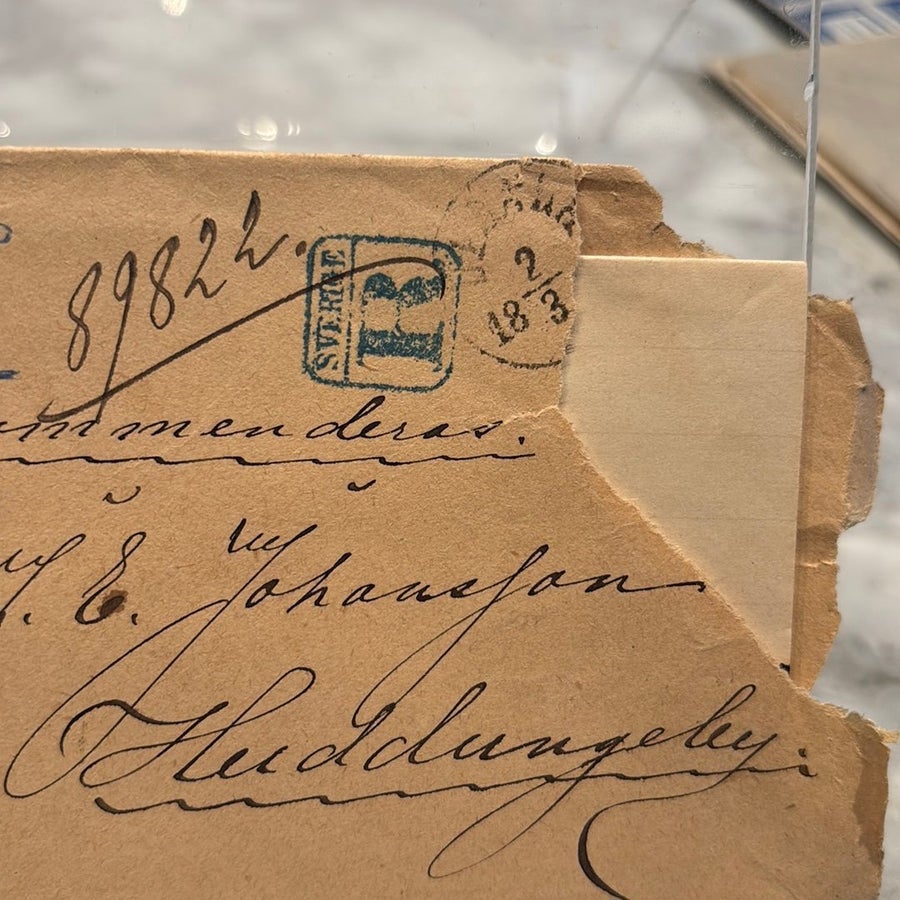 89822.
SVERIGE
R
2/3
18
mmenderas.
E. Johansson
Huddungeby.